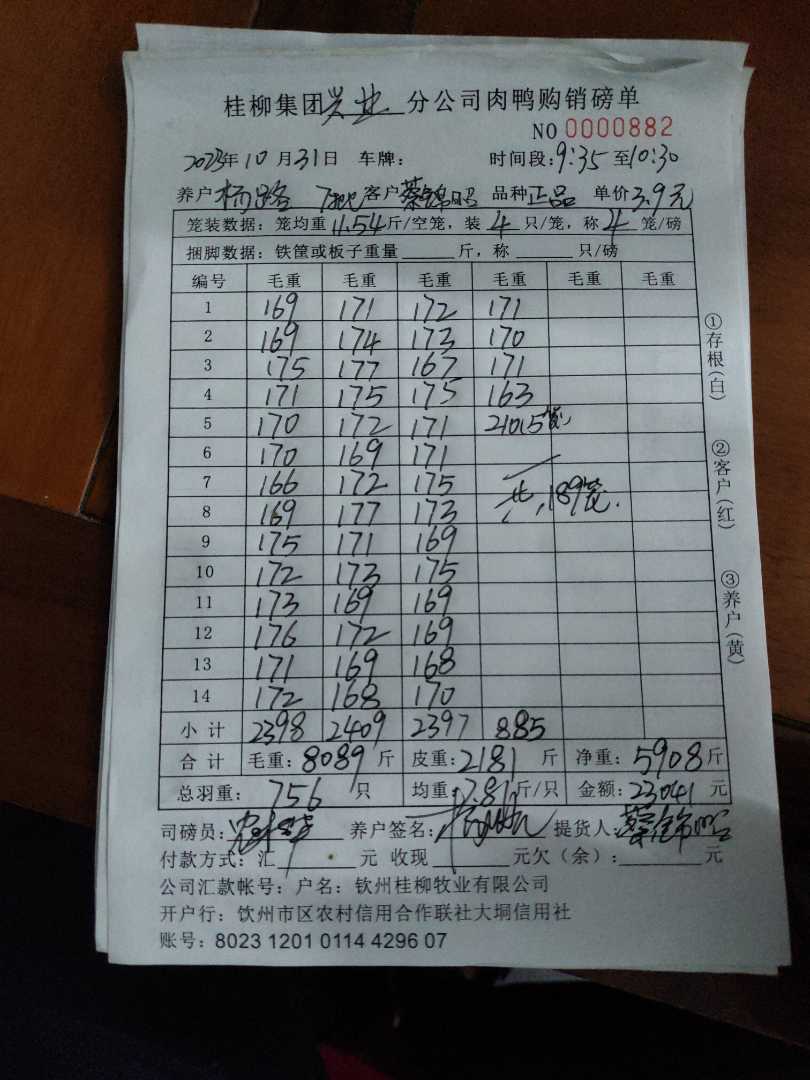 桂柳集团兴业分公司肉鸭购销磅单
NO 0000882
2023年10月31日 车牌: 时间段:9:35至10:30
养户 杨路 7批 客户 蔡锦昭 品种 正品 单价 3.9元
笼装数据: 笼均重 11.54 斤/空笼, 装 4 只/笼, 称 4 笼/磅
捆脚数据: 铁筐或板子重量 斤, 称 只/磅
编号 毛重 毛重 毛重 毛重 毛重 毛重
1 169 171 172 171
2 169 174 173 170
3 175 177 167 171
4 171 175 175 163
5 170 172 171 210.5笼
6 170 169 171
7 166 172 175
8 169 177 173 共,189笼.
9 175 171 169
10 172 173 175
11 173 169 169
12 176 172 169
13 171 169 168
14 172 168 170
小计 2398 2409 2397 885
合计 毛重: 8089 斤 皮重: 2181 斤 净重: 5908 斤
总羽重: 756 只 均重: 7.81 斤/只 金额: 23041 元
司磅员: 养户签名: 提货人: 蔡锦昭
付款方式: 汇 元 收现 元欠(余): 元
公司汇款帐号: 户名: 钦州桂柳牧业有限公司
开户行: 钦州市区农村信用合作联社大垌信用社
账号: 8023 1201 0114 4296 07
①存根(白)
②客户(红)
③养户(黄)